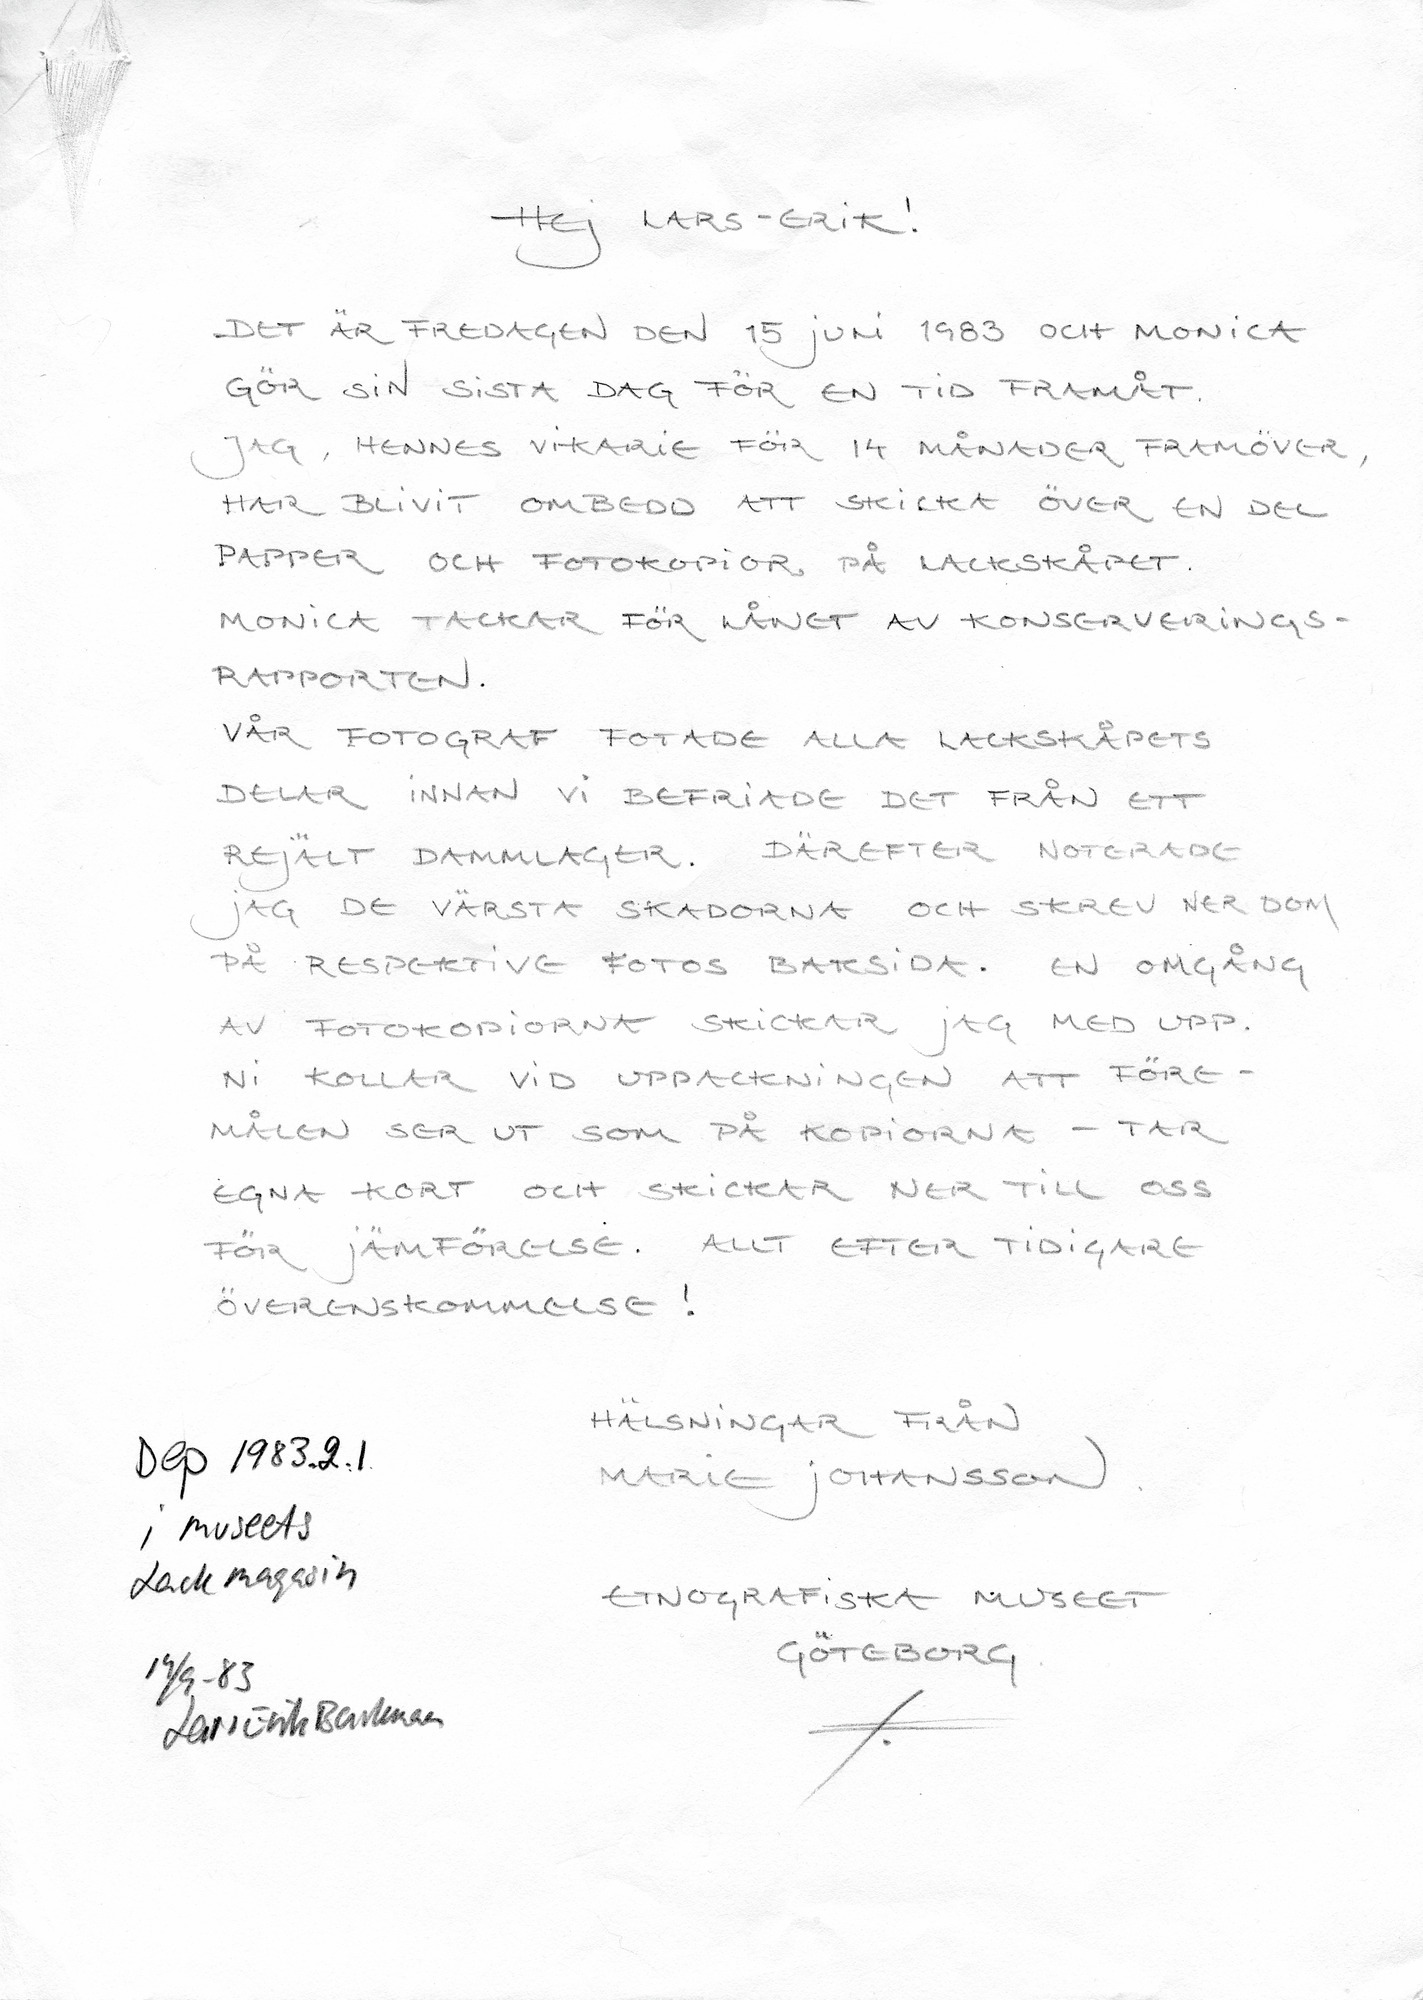 Hej LARS-ERiK!
DET ÄR FREDAGEN DEN 15 juni 1983 OCH MONiCA
GÖR SiN SiSTA DAG FÖR EN TiD FRAMÅT.
JAG, HENNES ViKARiE FÖR 14 MÅNADER FRAMÖVER,
HAR BLiViT OMBEDD ATT SKiCKA ÖVER EN DEL
PAPPER OCH FOTOKOPiOR PÅ LACKSKÅPET.
MONiCA TACKAR FÖR LÅNET AV KONSERVERiNGS-
RAPPORTEN.
VÅR FOTOGRAF FOTADE ALLA LACKSKÅPETS
DELAR iNNAN Vi BEFRiADE DET FRÅN ETT
REjÄLT DAMMLAGER. DÄREFTER NOTERADE
jAG DE VÄRSTA SKADORNA OCH SKREV NER DOM
PÅ RESPEKTiVE FOTOS BAKSiDA. EN OMGÅNG
AV FOTOKOPiORNA SKiCKAR jAG MED UPP.
Ni KOLLAR ViD UPPACKNiNGEN ATT FÖRE-
MÅLEN SER UT SOM PÅ KOPiORNA - TAR
EGNA KORT OCH SKiCKAR NER TiLL OSS
FÖR jÄMFÖRELSE. ALLT EFTER TiDiGARE
ÖVERENSKOMMELSE!
HÄLSNiNGAR FRÅN
MARiE jOHANSSON.
ETNOGRAFiSKA MUSEET
GÖTEBORG.
Dep 1983.2.1.
i museets
Lackmagasin
19/9-83
Lars Erik Barkman